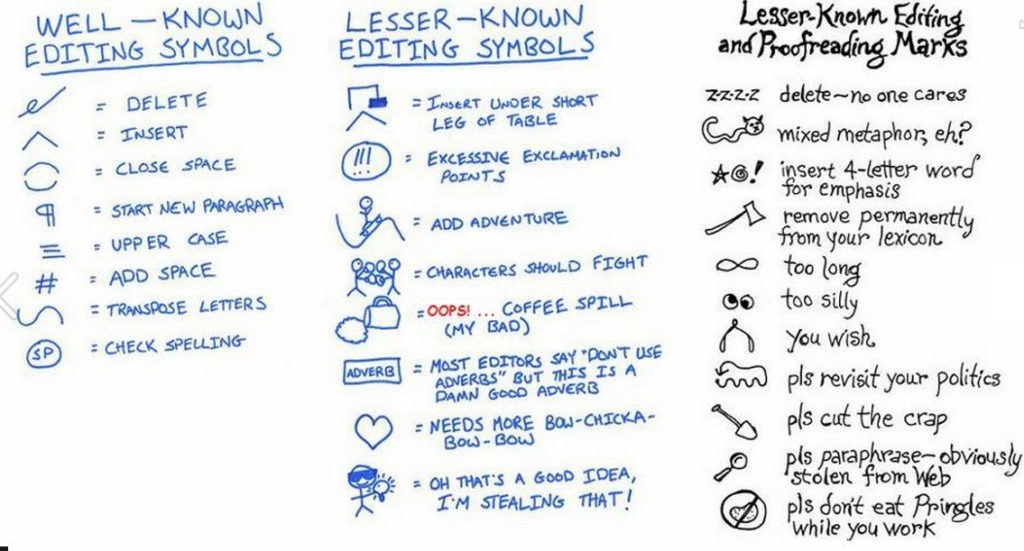 WELL-KNOWN
EDITING SYMBOLS
= DELETE
= INSERT
= CLOSE SPACE
= START NEW PARAGRAPH
= UPPER CASE
# = ADD SPACE
= TRANSPOSE LETTERS
SP = CHECK SPELLING
LESSER-KNOWN
EDITING SYMBOLS
= INSERT UNDER SHORT
LEG OF TABLE
!!! = EXCESSIVE EXCLAMATION
POINTS
= ADD ADVENTURE
= CHARACTERS SHOULD FIGHT
= OOPS! ... COFFEE SPILL
(MY BAD)
ADVERB = MOST EDITORS SAY "DON'T USE
ADVERBS" BUT THIS IS A
DAMN GOOD ADVERB
= NEEDS MORE BOW-CHICKA-
BOW-BOW
= OH THAT'S A GOOD IDEA,
I'M STEALING THAT!
Lesser-Known Editing
and Proofreading Marks
z-z-z-z delete—no one cares
mixed metaphor, eh?
★@! insert 4-letter word
for emphasis
remove permanently
from your lexicon
∞ too long
too silly
you wish
pls revisit your politics
pls cut the crap
pls paraphrase—obviously
stolen from Web
pls don't eat Pringles
while you work